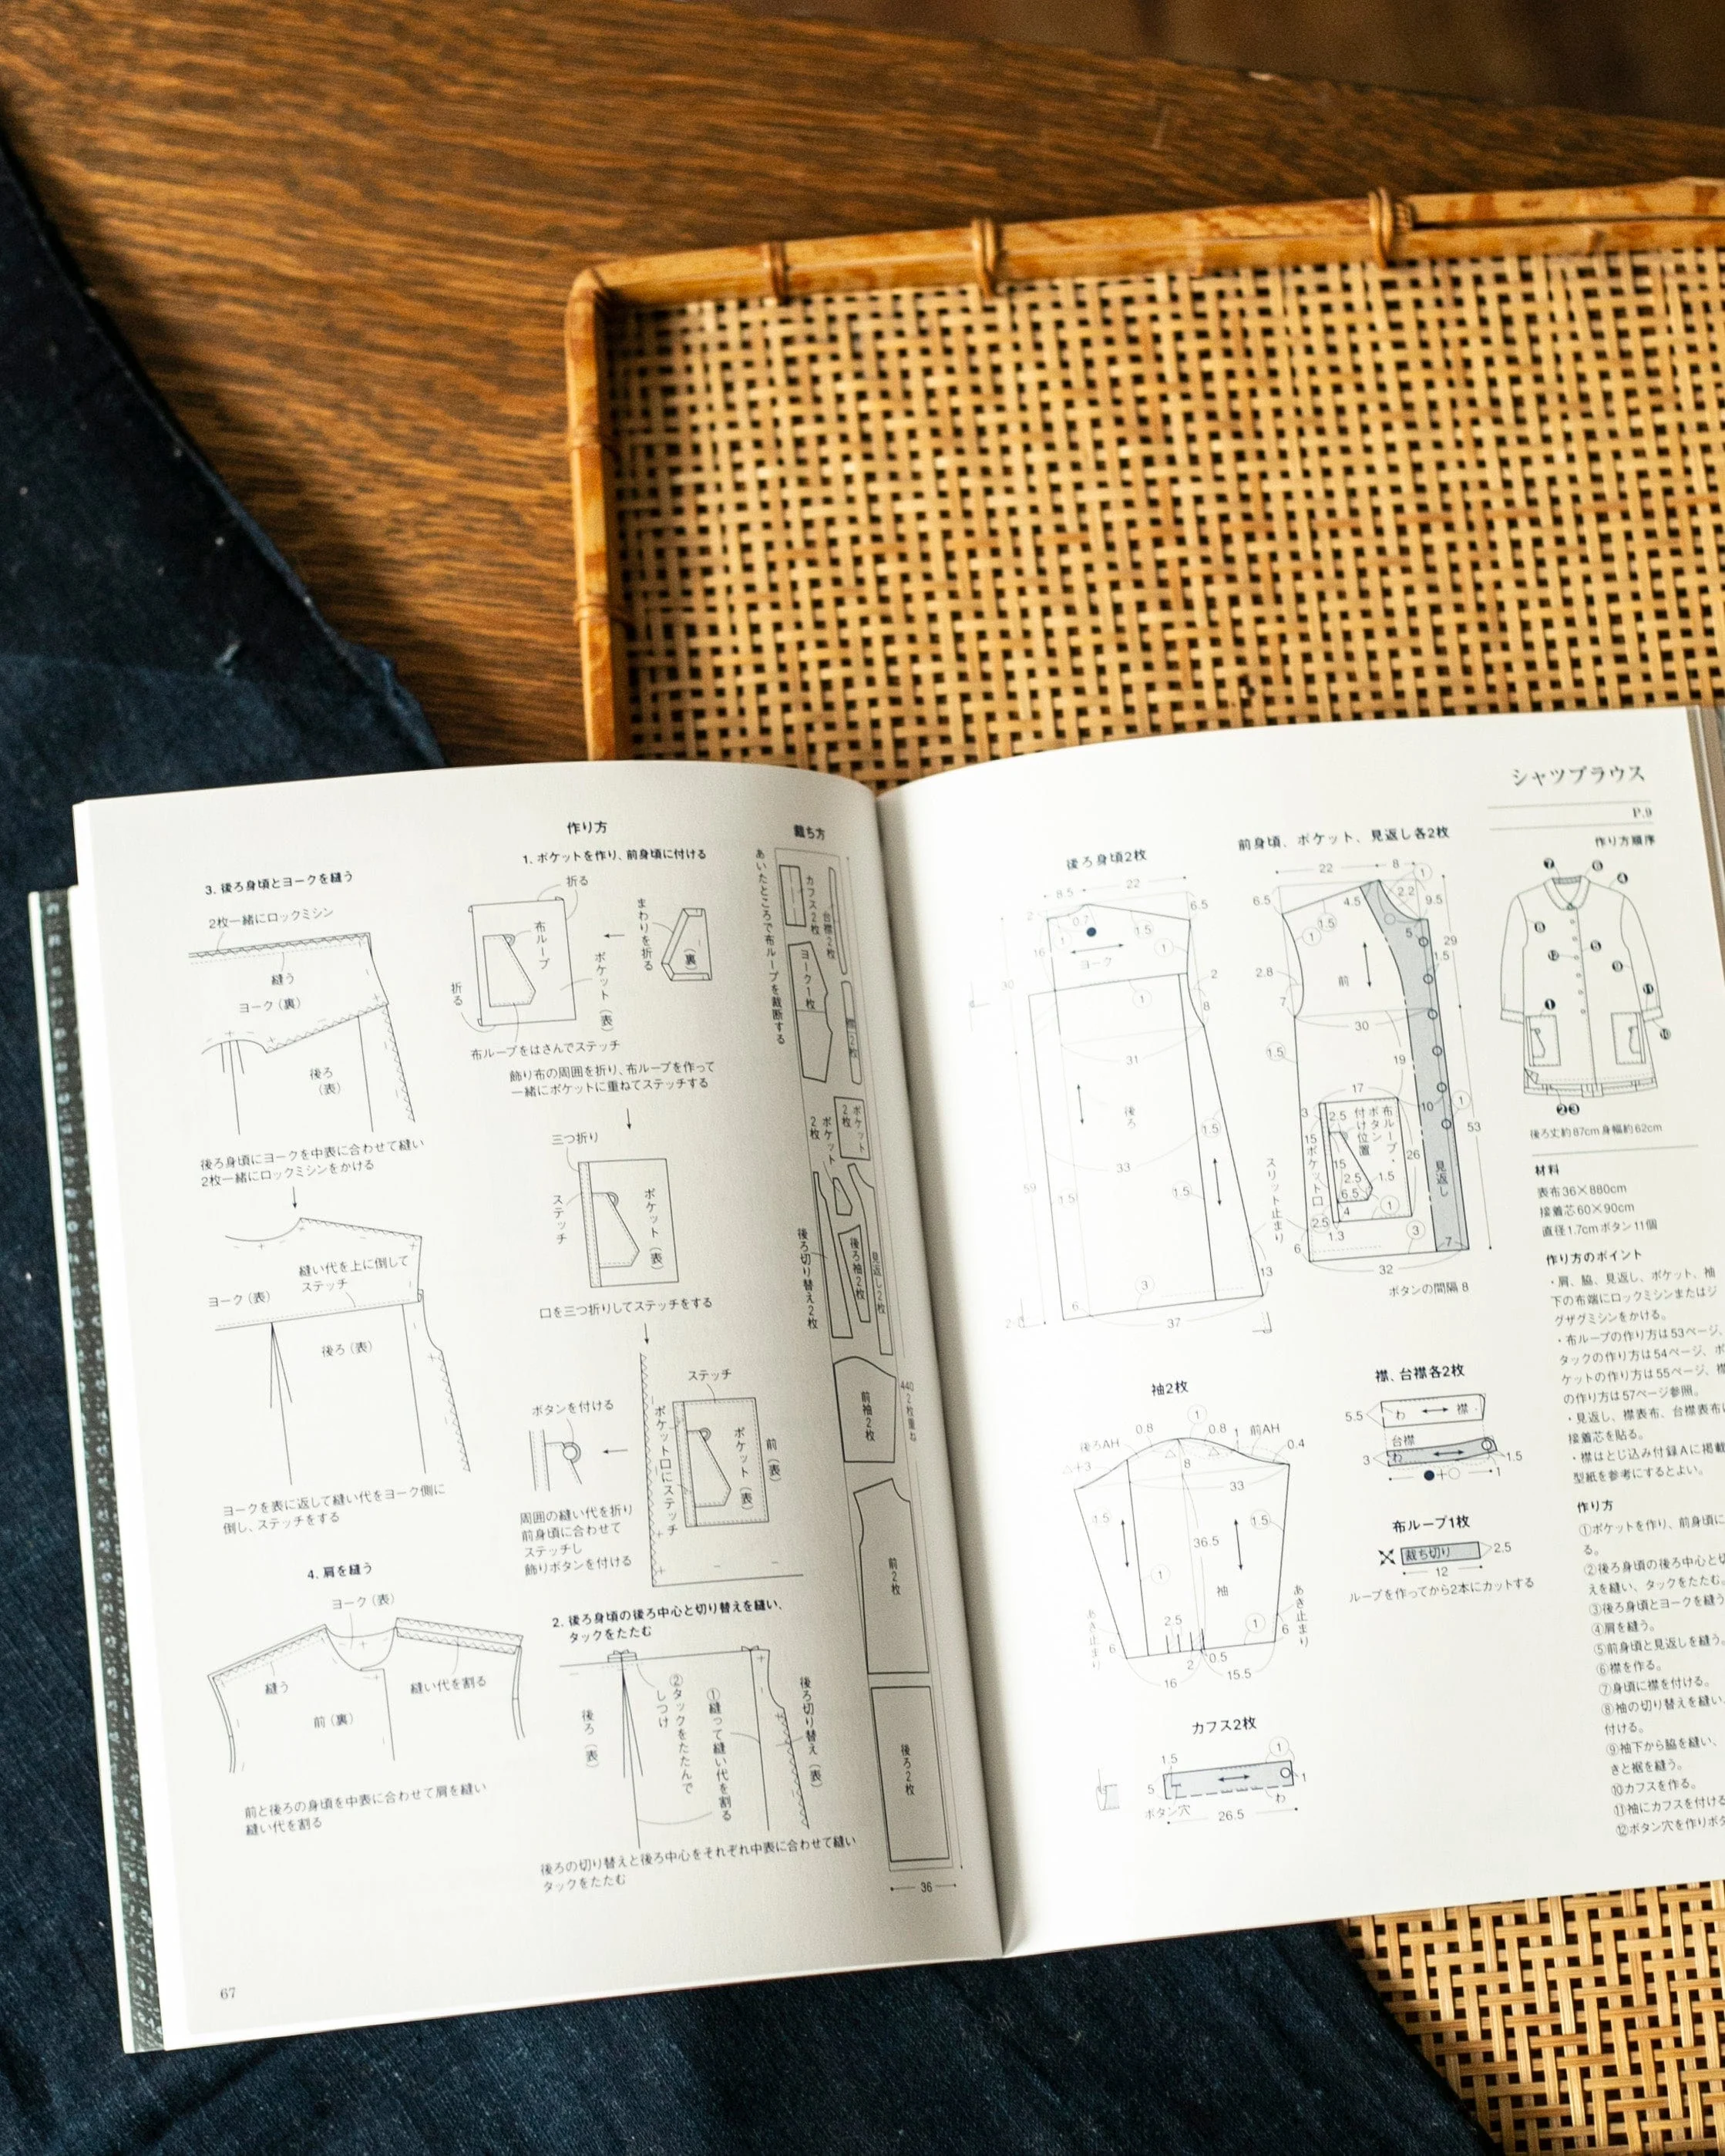 シャツブラウス
P.9
作り方順序
後ろ丈約87cm 身幅約62cm
材料
表布36×880cm
接着芯60×90cm
直径1.7cmボタン11個
作り方のポイント
・肩、脇、見返し、ポケット、袖
下の布端にロックミシンまたはジ
グザグミシンをかける。
・布ループの作り方は53ページ、
タックの作り方は54ページ、ポ
ケットの作り方は55ページ、襟
の作り方は57ページ参照。
・見返し、襟表布、台襟表布に
接着芯を貼る。
・襟はとじ込み付録Aに掲載
型紙を参考にするとよい。
作り方
①ポケットを作り、前身頃に
る。
②後ろ身頃の後ろ中心と切
えを縫い、タックをたたむ。
③後ろ身頃とヨークを縫う
④肩を縫う。
⑤前身頃と見返しを縫う。
⑥襟を作る。
⑦身頃に襟を付ける。
⑧袖の切り替えを縫い、
付ける。
⑨袖下から脇を縫い、
きと裾を縫う。
⑩カフスを作る。
⑪袖にカフスを付ける
⑫ボタン穴を作りボタ
前身頃、ポケット、見返し各2枚
22
8
1
2.2
6.5
4.5
9.5
1.5
1
5
29
1.5
2.8
前
7
30
1.5
19
17
10
1
3
2.5
布ループ・
ボタン
付け位置
15
ポケット口
53
26
15
2.5
1.5
6.5
4
1
見返し
スリット止まり
2.5
1.3
3
6
7
32
ボタンの間隔 8
後ろ身頃2枚
8.5
22
2
0.7
6.5
1
1.5
16
1
ヨーク
2
30
1
8
31
後ろ
1.5
33
59
1.5
1.5
13
3
6
37
袖2枚
1
0.8
0.8
1
前AH
後ろAH
0.4
△+3
8
33
1.5
1.5
36.5
1
袖
あき止まり
あき止まり
2.5
1
6
6
2
0.5
16
15.5
襟、台襟各2枚
5.5
わ
襟
台襟
3
わ
1.5
●+○
1
布ループ1枚
裁ち切り
2.5
12
ループを作ってから2本にカットする
カフス2枚
1.5
1
5
1
ボタン穴
わ
26.5
裁ち方
あいたところで布ループを裁断する
カフス2枚
台襟2枚
ヨーク1枚
襟2枚
ポケット2枚
ポケット2枚
後ろ切り替え2枚
後ろ袖2枚
見返し2枚
前袖2枚
440
2枚重ね
前2枚
後ろ2枚
36
作り方
1. ポケットを作り、前身頃に付ける
折る
布ループ
まわりを折る
(裏)
折る
ポケット(表)
布ループをはさんでステッチ
飾り布の周囲を折り、布ループを作って
一緒にポケットに重ねてステッチする
三つ折り
ステッチ
ポケット(表)
口を三つ折りしてステッチをする
ステッチ
ボタンを付ける
ポケット口にステッチ
ポケット(表)
前(表)
周囲の縫い代を折り
前身頃に合わせて
ステッチし
飾りボタンを付ける
2. 後ろ身頃の後ろ中心と切り替えを縫い、
タックをたたむ
後ろ(表)
②タックをたたんで
しつけ
①縫って縫い代を割る
後ろ切り替え(表)
後ろの切り替えと後ろ中心をそれぞれ中表に合わせて縫い
タックをたたむ
3. 後ろ身頃とヨークを縫う
2枚一緒にロックミシン
縫う
ヨーク(裏)
後ろ
(表)
後ろ身頃にヨークを中表に合わせて縫い
2枚一緒にロックミシンをかける
縫い代を上に倒して
ステッチ
ヨーク(表)
後ろ(表)
ヨークを表に返して縫い代をヨーク側に
倒し、ステッチをする
4. 肩を縫う
ヨーク(表)
縫う
縫い代を割る
前(裏)
前と後ろの身頃を中表に合わせて肩を縫い
縫い代を割る
67